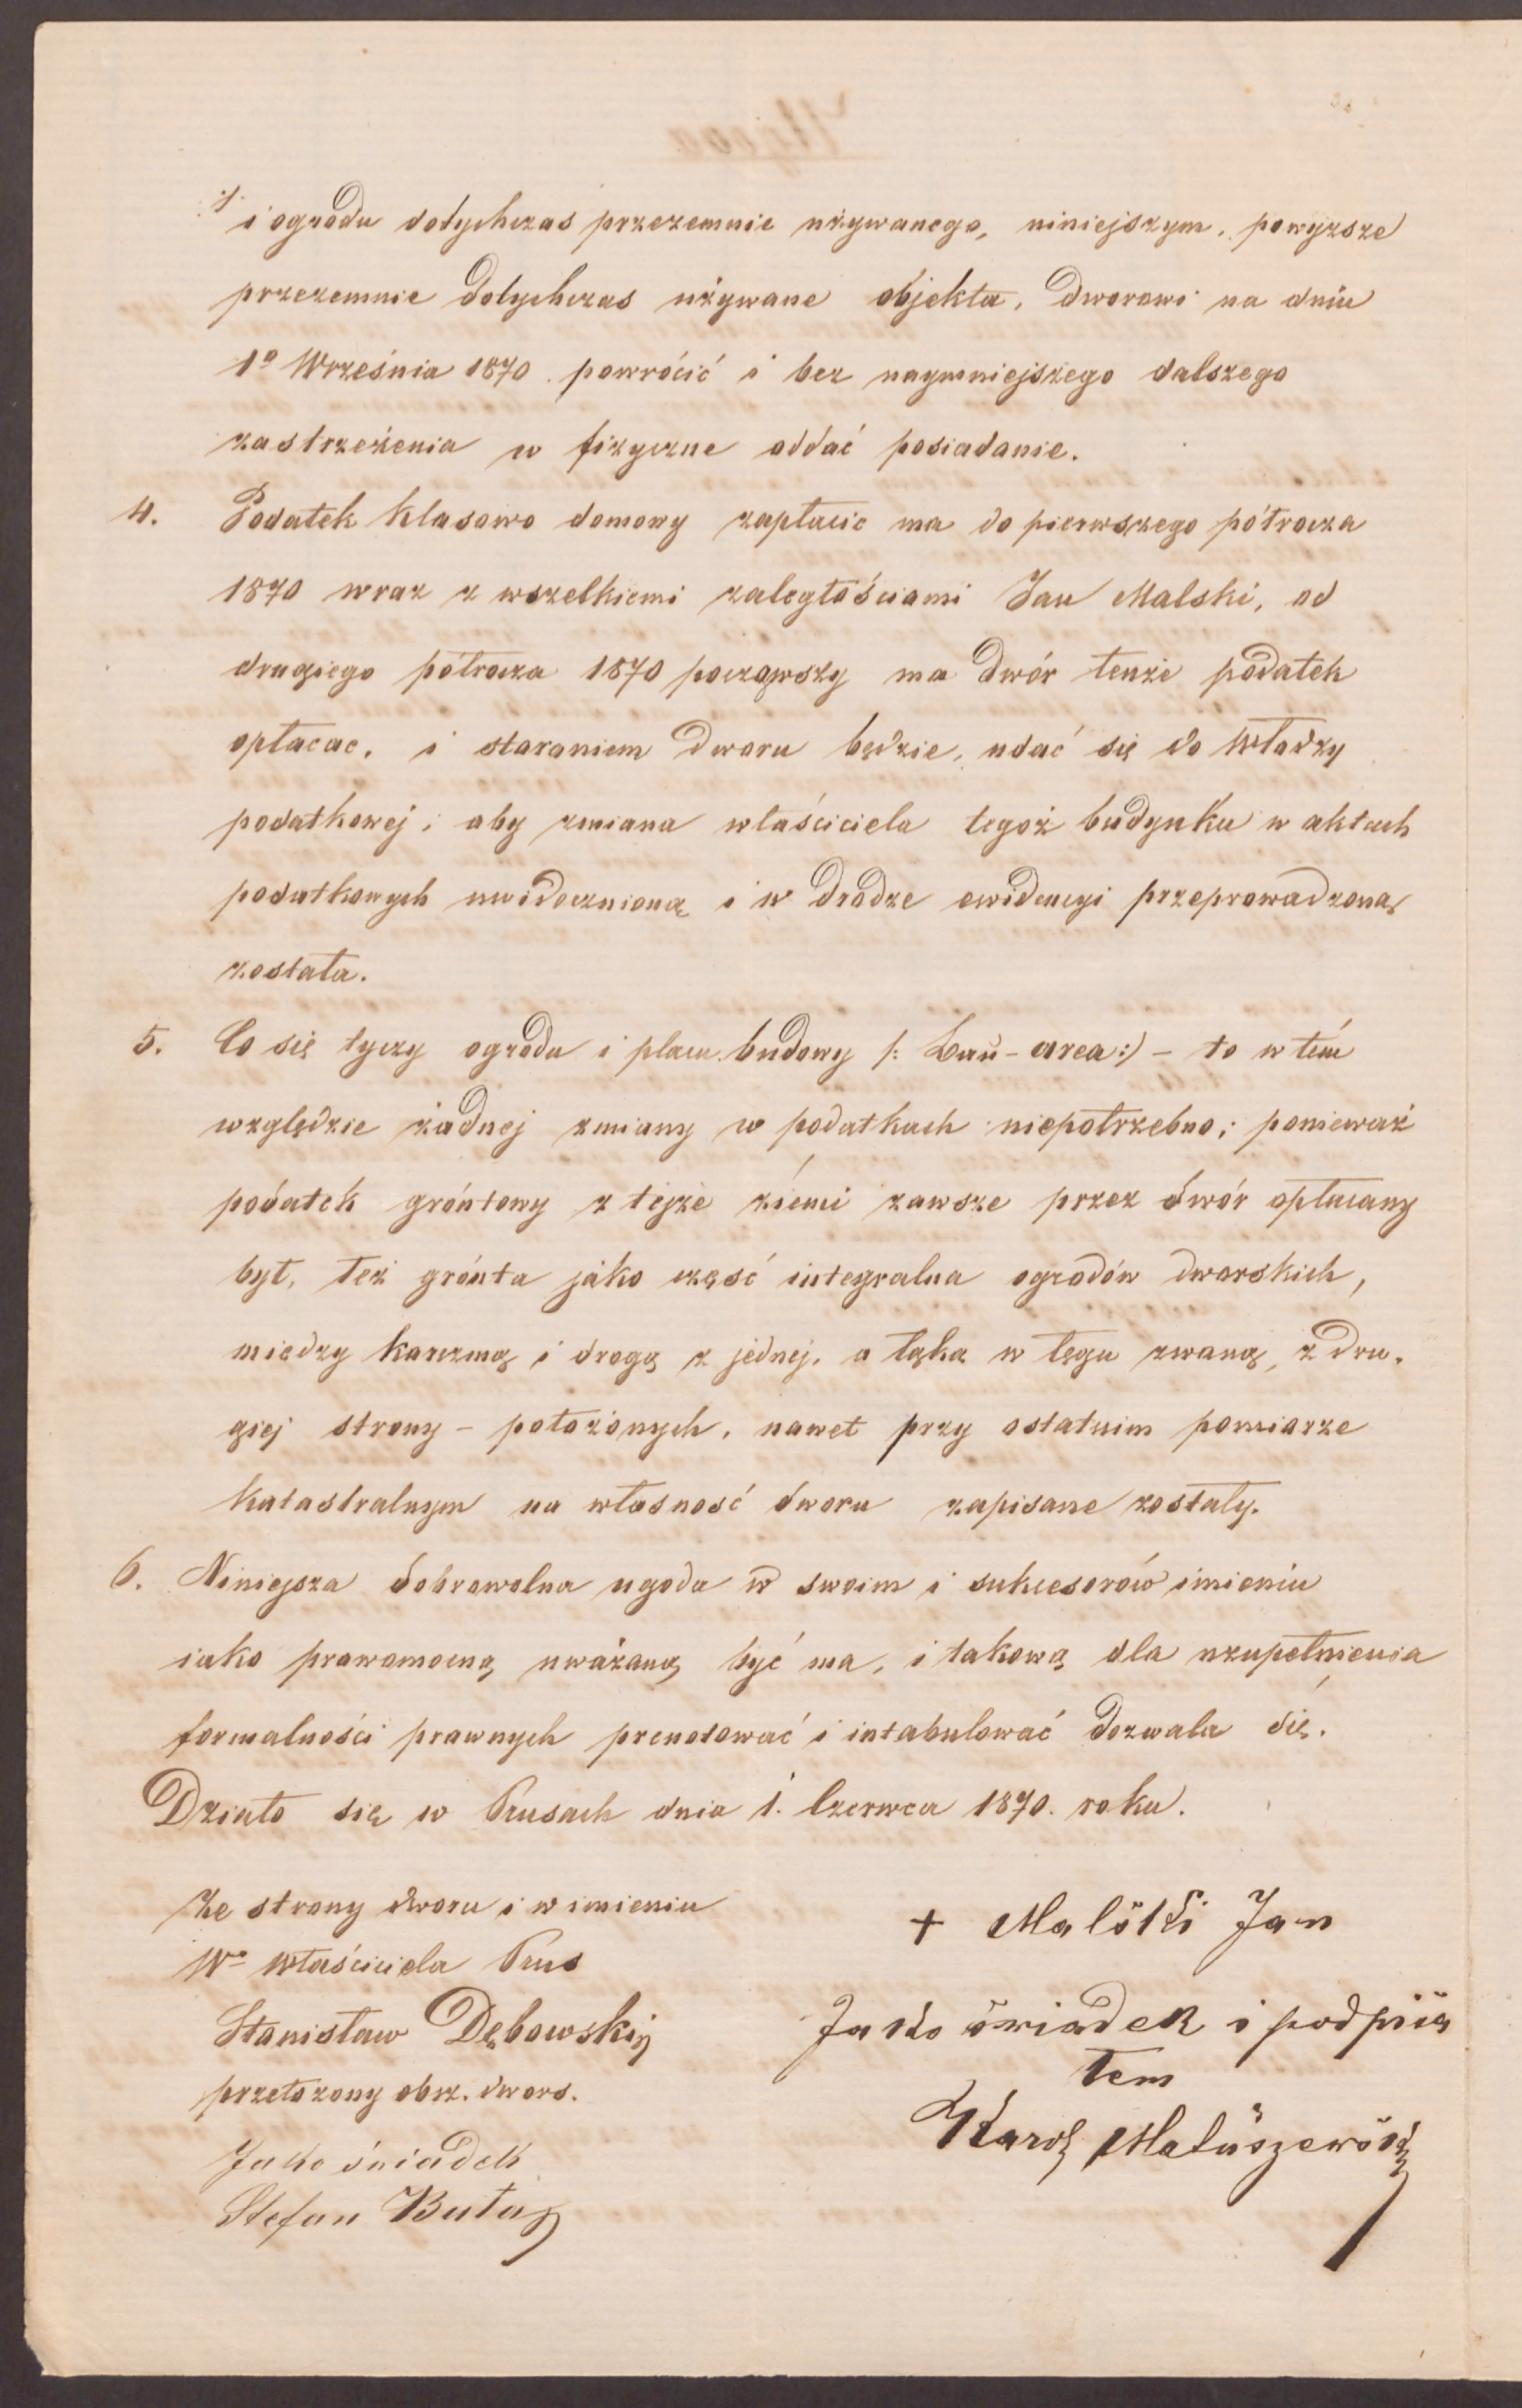 ./. i ogrodu dotychczas przezemnie używanego, niniejszym, powyższe
przezemnie dotychczas używane objekta, dworowi na dniu
1º Września 1870 powrócić i bez naymniejszego dalszego
zastrzeżenia w fizyczne oddać posiadanie.
4. Podatek klasowo domowy zapłacic ma do pierwszego półrocza
1870 wraz z wszelkiemi zaległościami Jan Malski, od
drugiego półrocza 1870 począwszy ma dwór tenże podatek
opłacac, i staraniem dworu będzie, udać się do Władzy
podatkowej, aby zmiana właściciela tegoż budynku w aktach
podatkowych uwidocznioną i w drodze ewidencyi przeprowadzoną
została.
5. Co się tyczy ogrodu i placu budowy /: Bau-area:/ – to w tém
względzie żadnej zmiany w podatkach niepotrzebno; ponieważ
podatek gróntowy z tejże ziemi zawsze przez dwór opłacany
był, też grónta jako część integralna ogrodów dworskich,
miedzy karczmą i drogą z jednej, a łąką w łęgu zwaną, z dru-
giej strony – położonych, nawet przy ostatnim pomiarze
katastralnym na własność dworu zapisane zostały.
6. Niniejsza dobrowolna ugoda w swoim i sukcesorów imieniu
iako prawomocną uważaną być ma, i takową dla uzupełnienia
formalności prawnych prenotować i intabulować dozwala się.
Działo się w Prusach dnia 1. Czerwca 1870. roku.
Ze strony dworu i w imieniu
Wº Właściciela Prus
Stanisław Dębowski
przełożony obsz. dwors.
Jako świadek
Stefan Buta
+ Malski Jan
Jako świadek i podpisa
łem
Karol Matuszewski